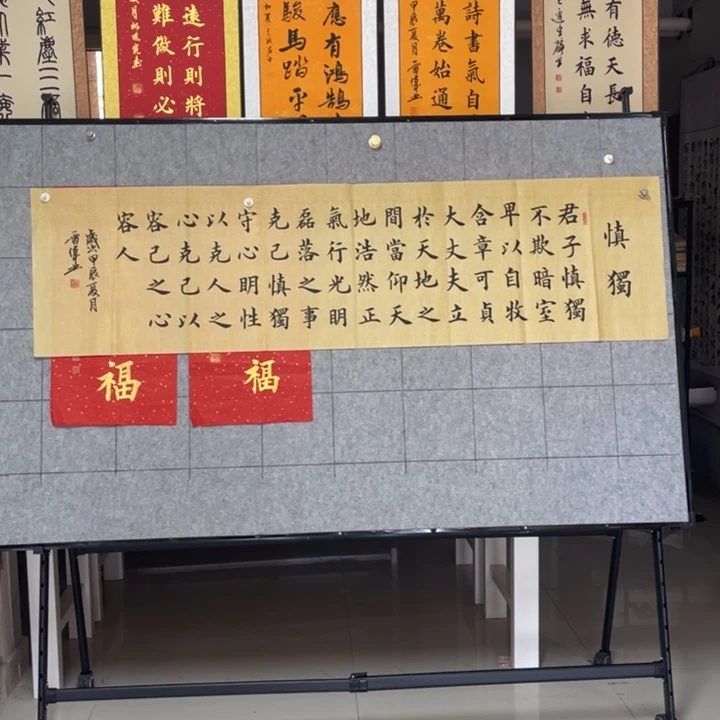 有德天長
無求福自
詩書氣自
萬卷始通
應有鴻鵠
駿馬踏平
遠行則將
難做則必
紅塵三
慎獨
君子慎獨
不欺暗室
卑以自牧
含章可貞
大丈夫立
於天地之
間當仰天
地浩然正
氣行光明
磊落之事
克己慎獨
守心明性
以克人之
心克己以
容己之心
容人
歲次甲辰夏月
福
福